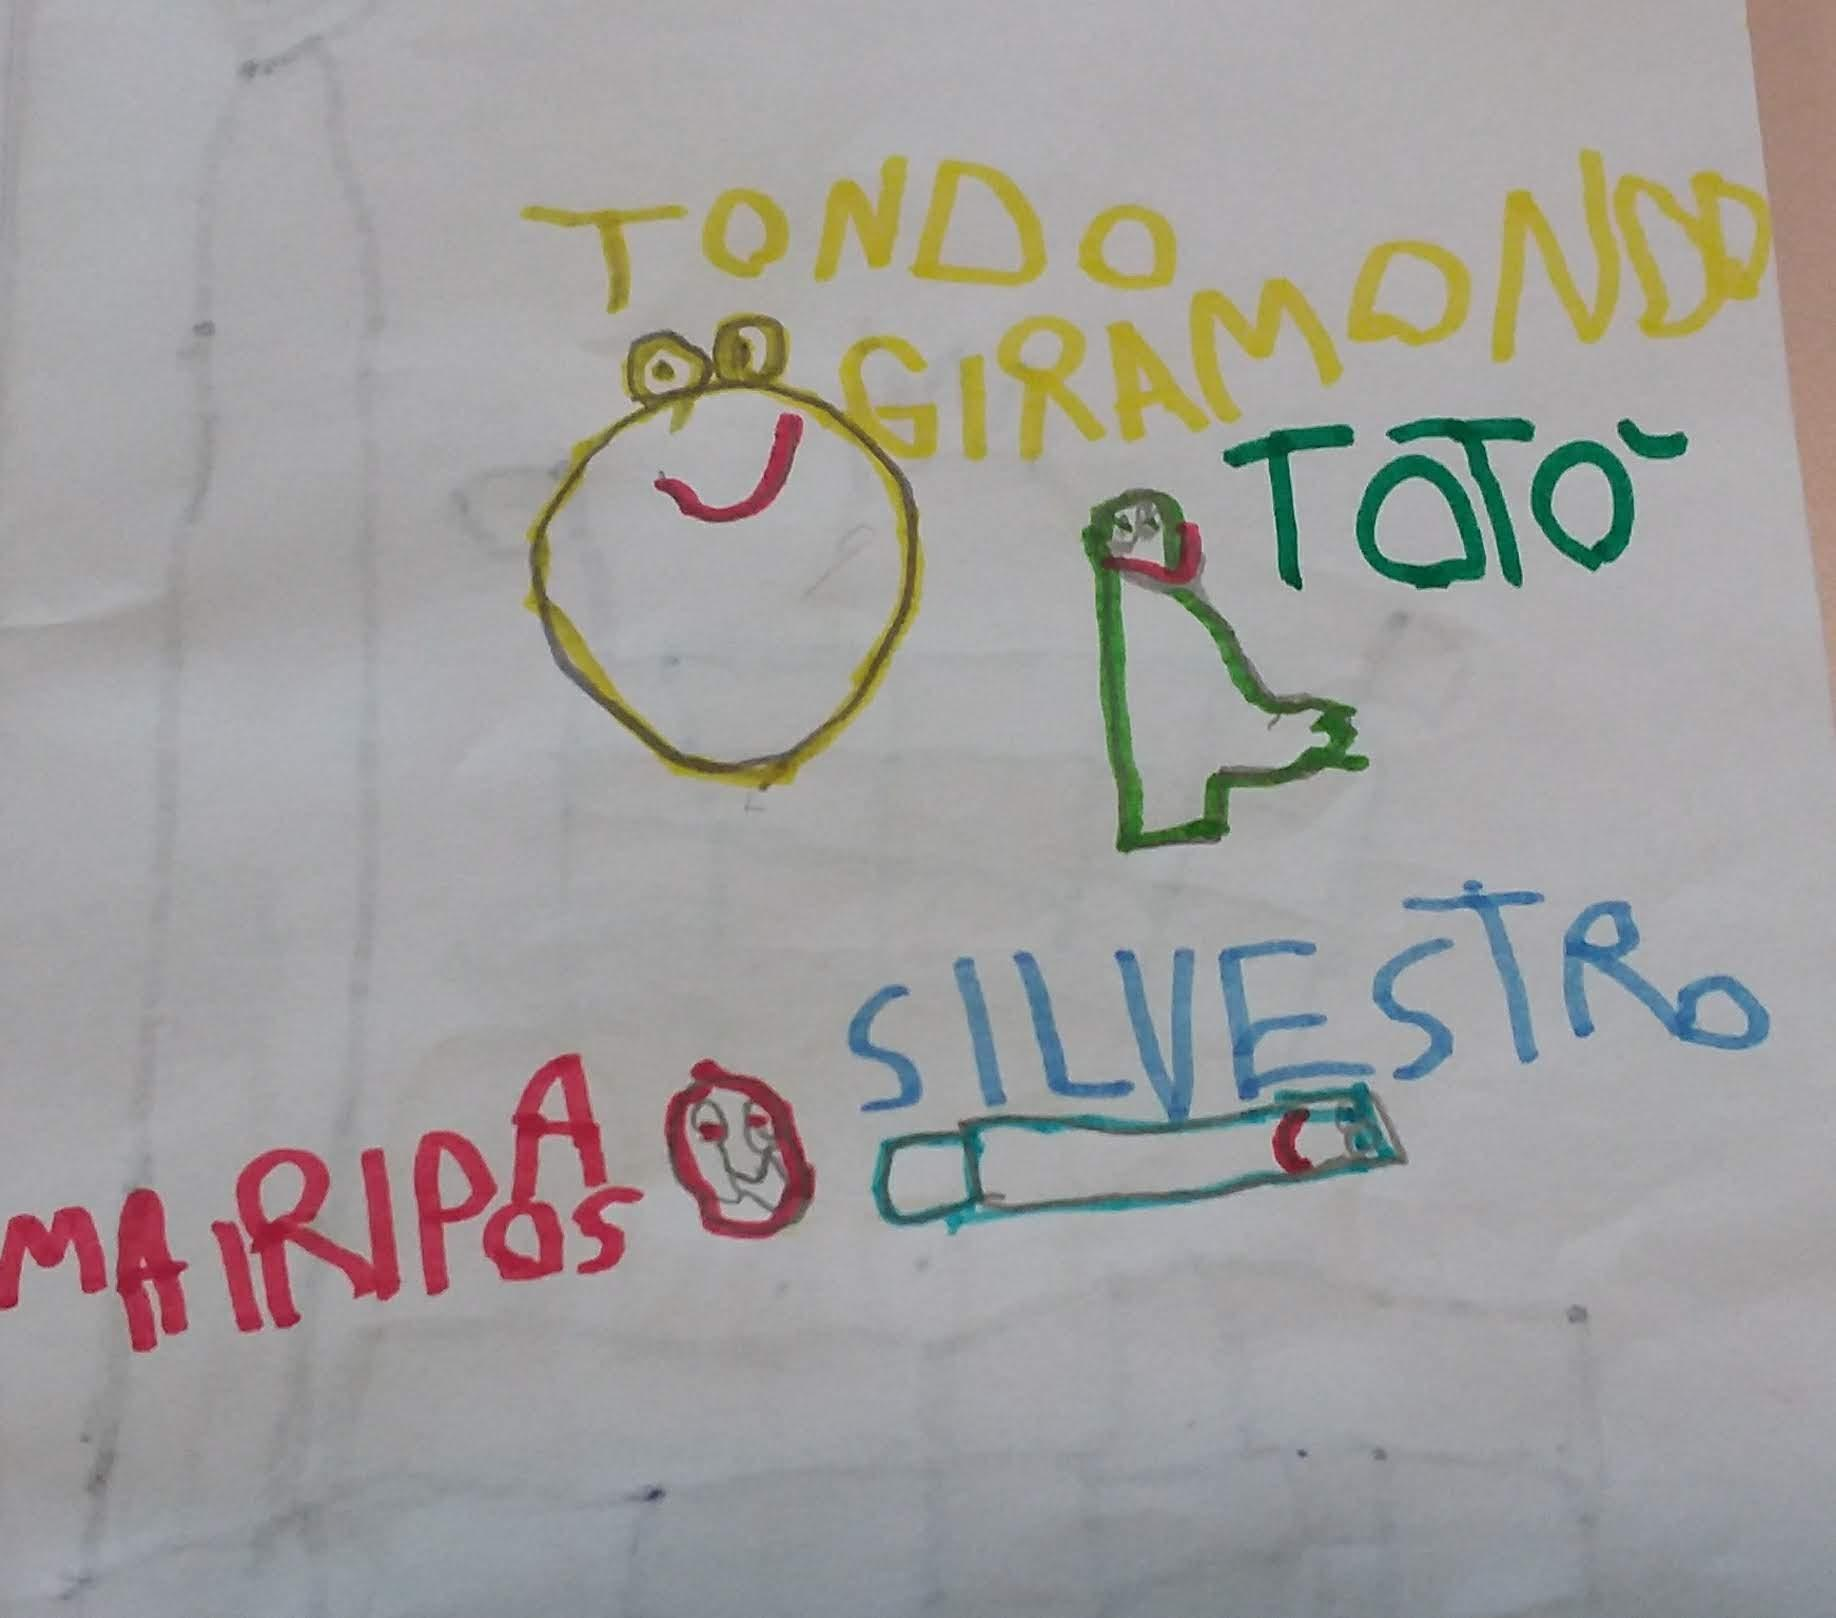 TONDO
GIRAMONDO
TOTO`
SILVESTRO
MARIPOSA